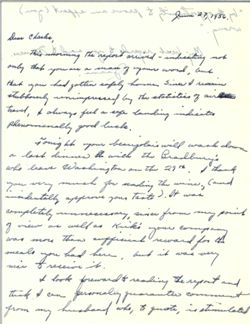 June 27, 1956
Dear Charles,
This morning the report arrived - indicating not
only that you are a man of your word, but
that you had gotten safely home. Since I remain
stubbornly unimpressed by the statistics of air
travel, I always feel a safe landing indicates
phenomenally good luck.
Tonight your beaujolais will wash down
a last dinner with the Bradburys
who leave Washington on the 29th. I thank
you very much for sending the wine, (and
incidentally approve your taste). It was
completely unnecessary, since from my point
of view as well as your company
was more than sufficient reward for the
meals you had here, but it was very
nice to receive it.
I look forward to reading the report and
think I can personally guarantee comment
from my husband who, to quote, is stimulated